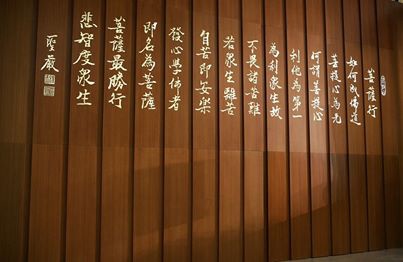 菩薩行
如何成佛道
菩提心為先
何謂菩提心
利他為第一
為利眾生故
不畏諸苦難
若眾生離苦
自苦即安樂
發心學佛者
即名為菩薩
菩薩最勝行
悲智度眾生
聖嚴